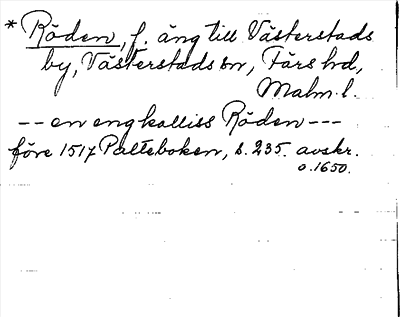 * Röden, f. äng till Västerstads
by, Västerstads sn, Färs hd,
Malm. l.
-- en eng kalliss Röden ---
före 1517 Palteboken, s. 235. avskr.
o. 1650.